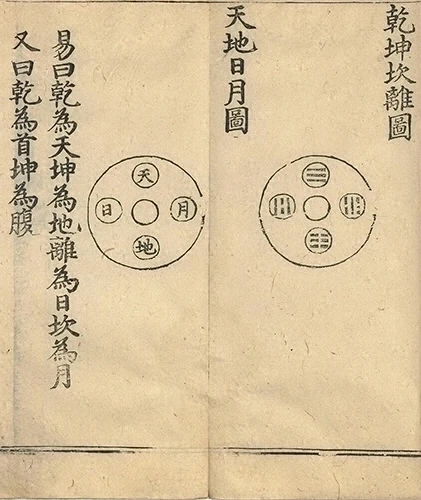 乾坤坎離圖
天地日月圖
天
日
月
地
易曰乾為天坤為地離為日坎為月
又曰乾為首坤為腹